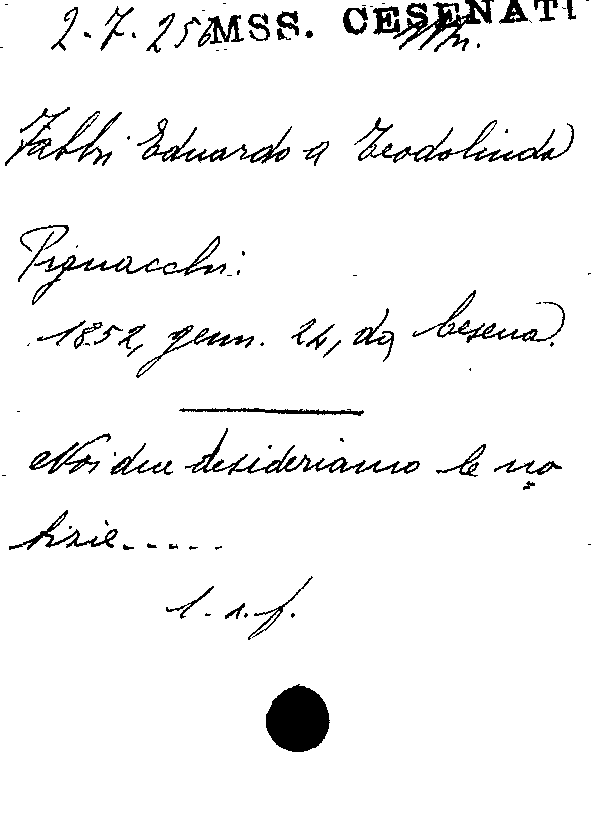 2-7-256 MSS. CESENATI
Fabbri Eduardo a Teodolinda
Pignacchi:
1852, genn. 24, da Cesena.
Noi due desideriamo le no
tizie.....
l. a. f.